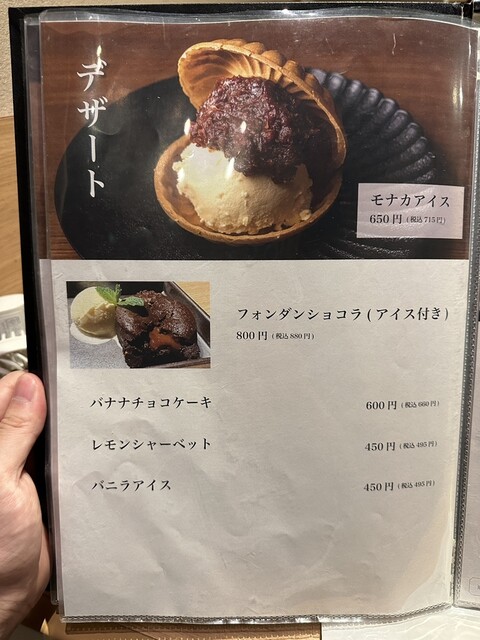 デザート
モナカアイス
650円（税込715円）
フォンダンショコラ(アイス付き)
800円（税込880円）
バナナチョコケーキ 600円（税込660円）
レモンシャーベット 450円（税込495円）
バニラアイス 450円（税込495円）